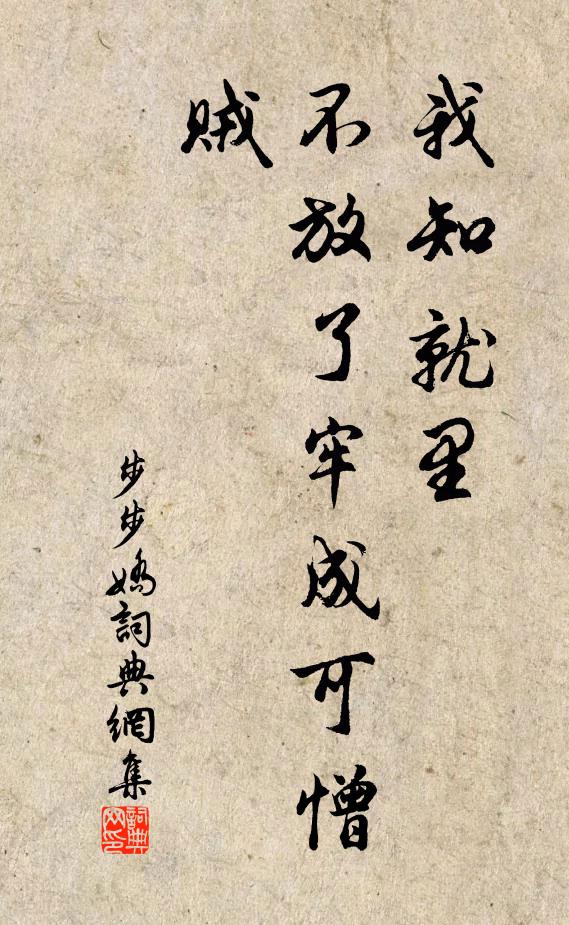 我知就里
不放了牢成可憎
贼
步步娇詞典網集
詞典
网印